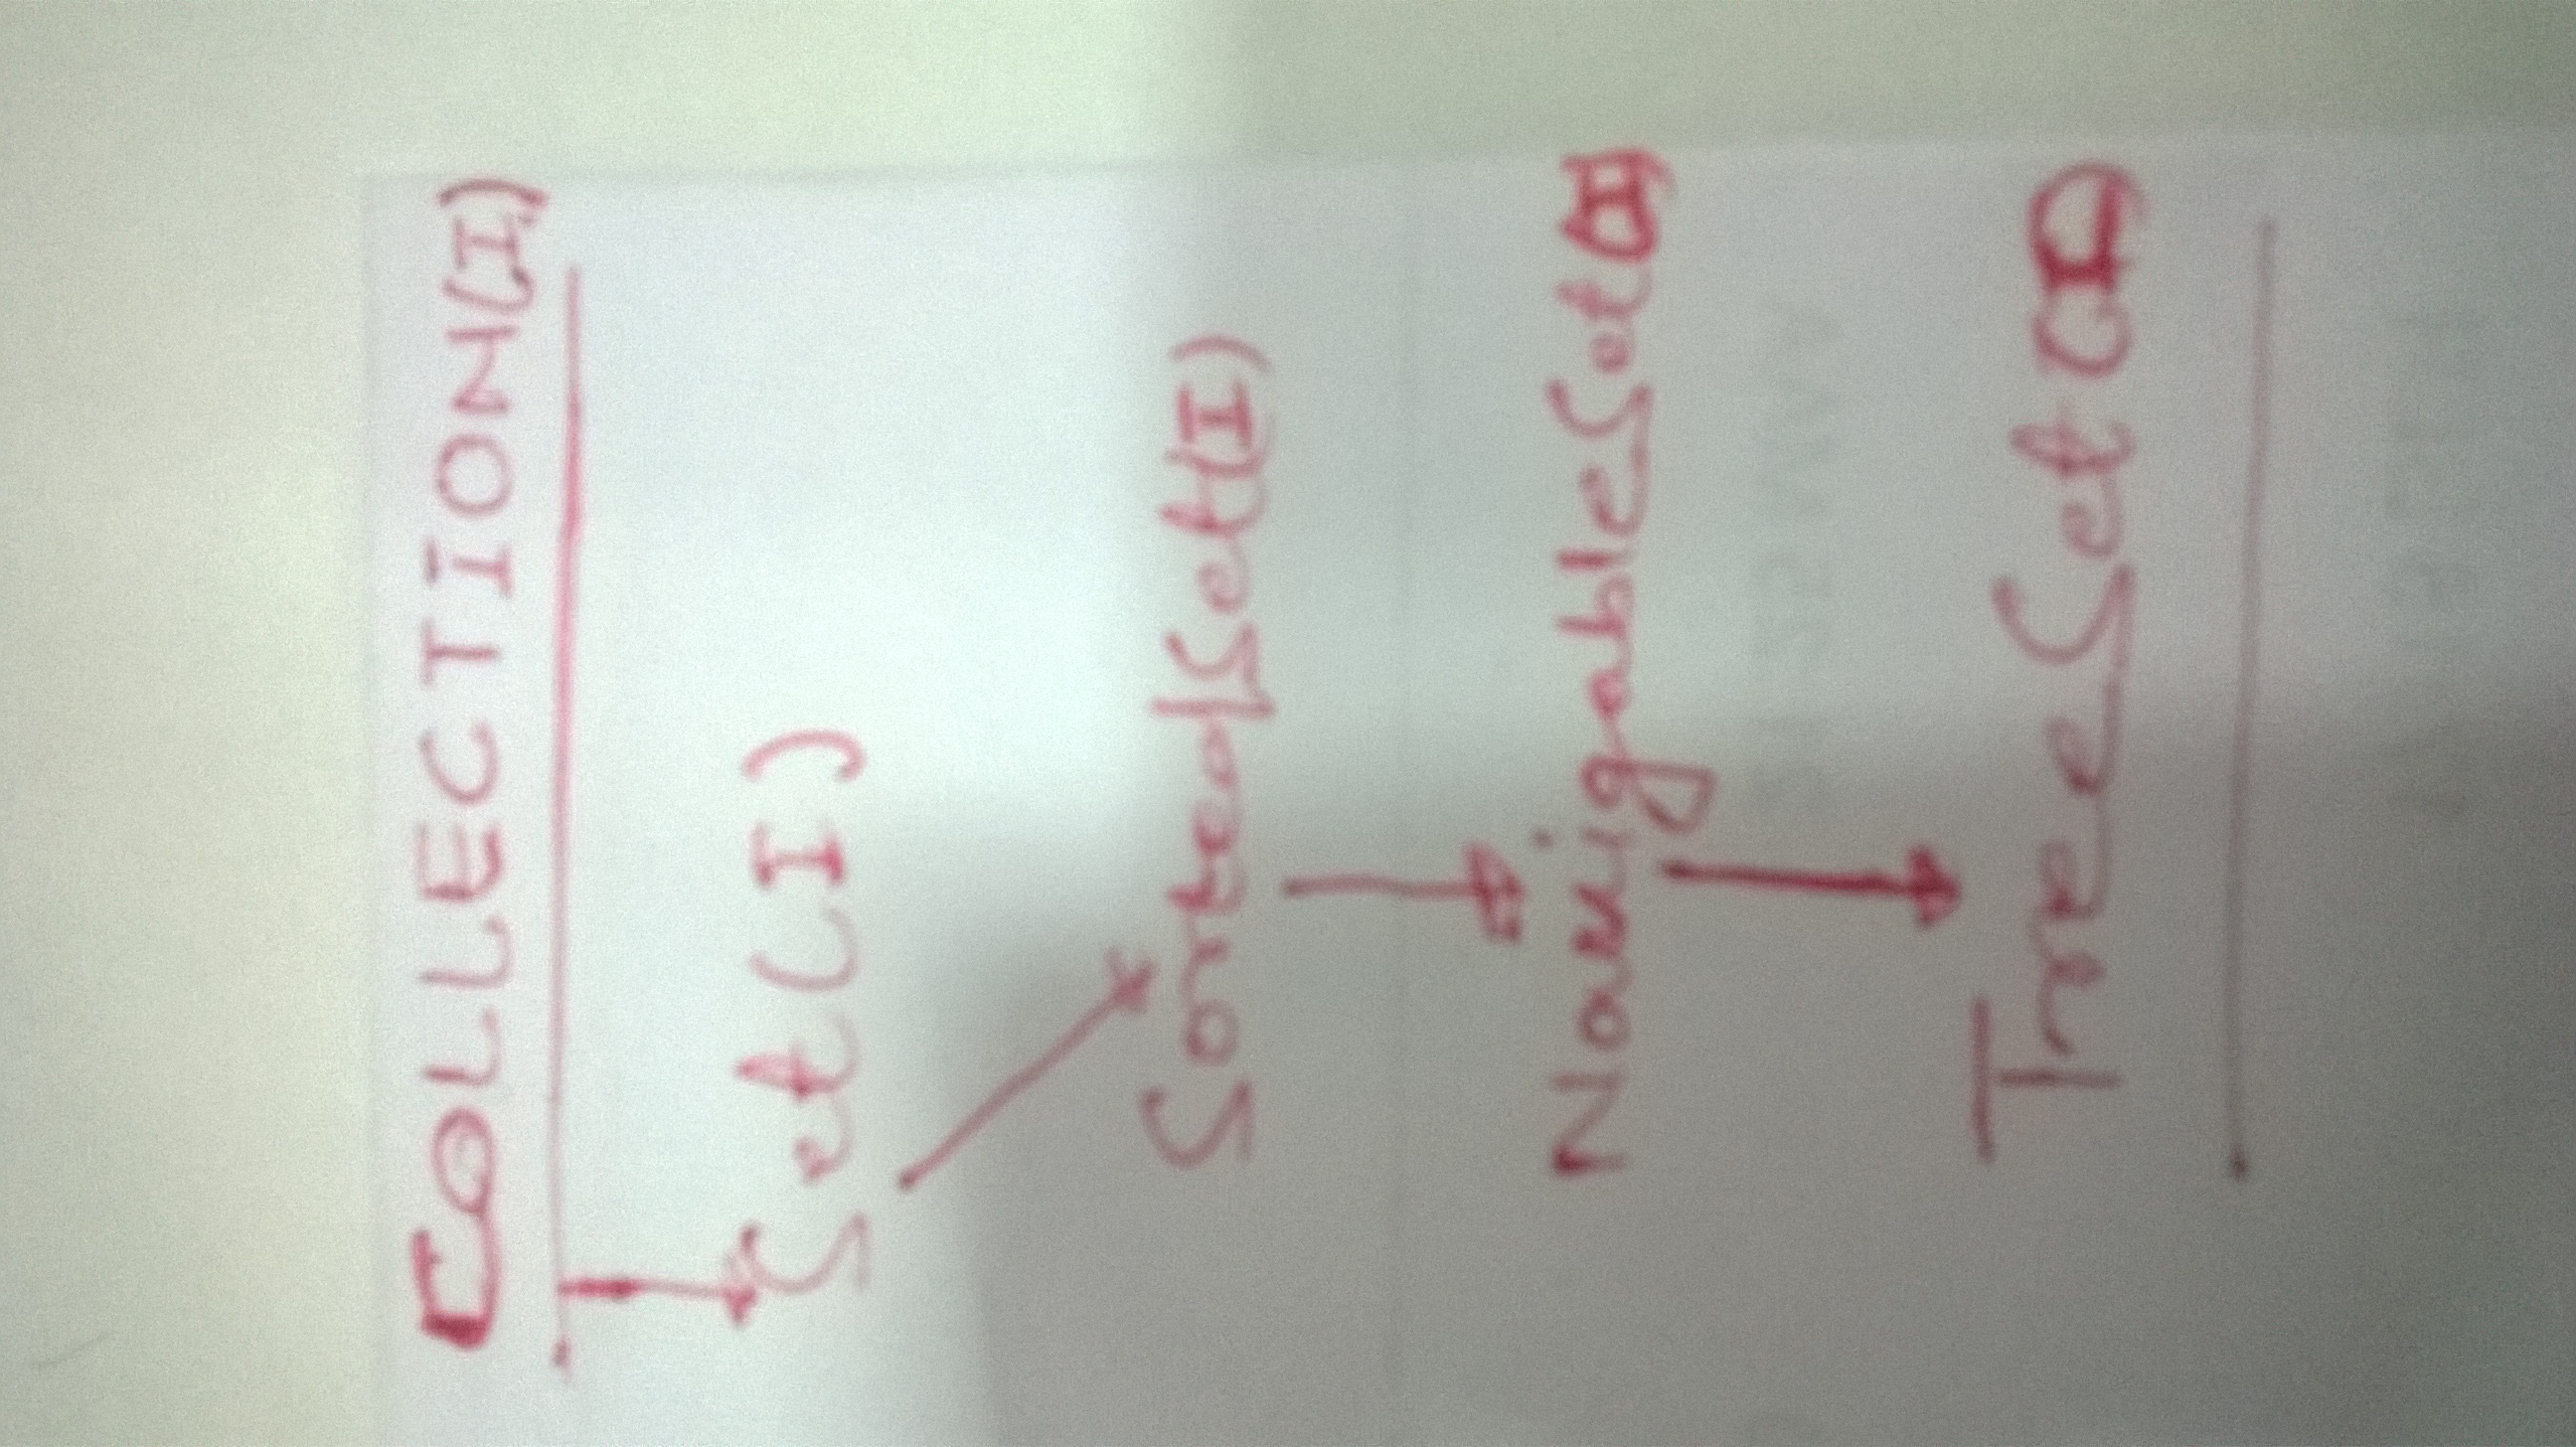 COLLECTION(I)
Set(I)
Sorted Set(I)
NavigableSet(I)
TreeSet